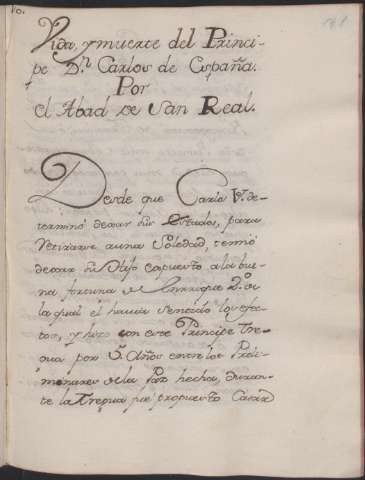 Vida, y muerte del Princi-
pe Dn. Carlos de España.
Por
el Abad de San Real.
Desde que Carlo V. de-
terminó dexar sus Estados, para
retirarse a una Soledad, temió
dexar su Hijo expuesto a la bue-
na fortuna de Enrrique 2.o de
la qual él havia sentido los efec-
tos, y hizo con este Principe Tre-
gua por 5 Años entre los Preli-
minares de la Paz hecha, duran-
te la Tregua fue propuesto Casar